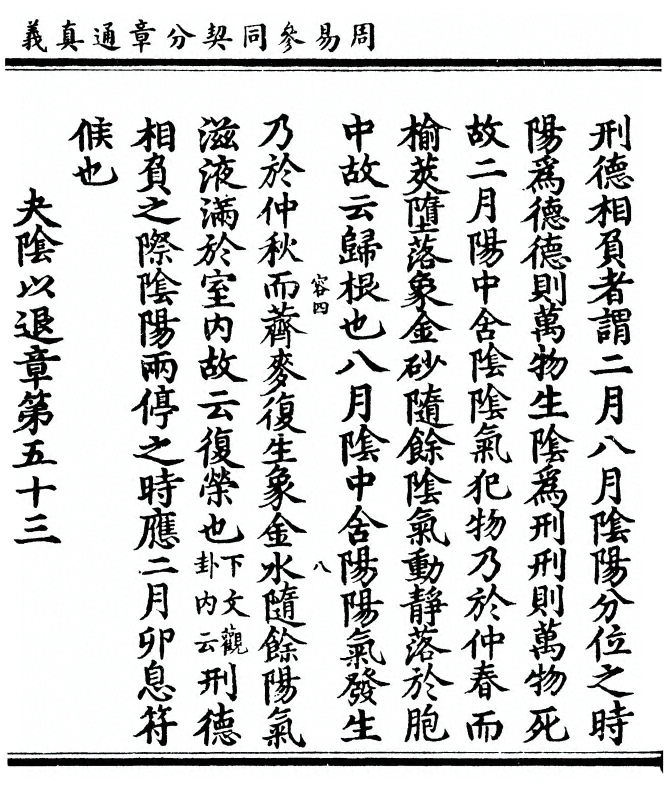 周易參同契分章通真義
刑德相負者謂二月八月陰陽分位之時
陽為德德則萬物生陰為刑刑則萬物死
故二月陽中含陰陰氣犯物乃於仲春而
榆莢墮落象金砂隨餘陰氣動靜落於胞
中故云歸根也八月陰中含陽陽氣發生
容四
八
乃於仲秋而薺麥復生象金水隨餘陽氣
滋液滿於室內故云復榮也下文觀卦內云刑德
相負之際陰陽兩停之時應二月卯息符
候也
夬陰以退章第五十三